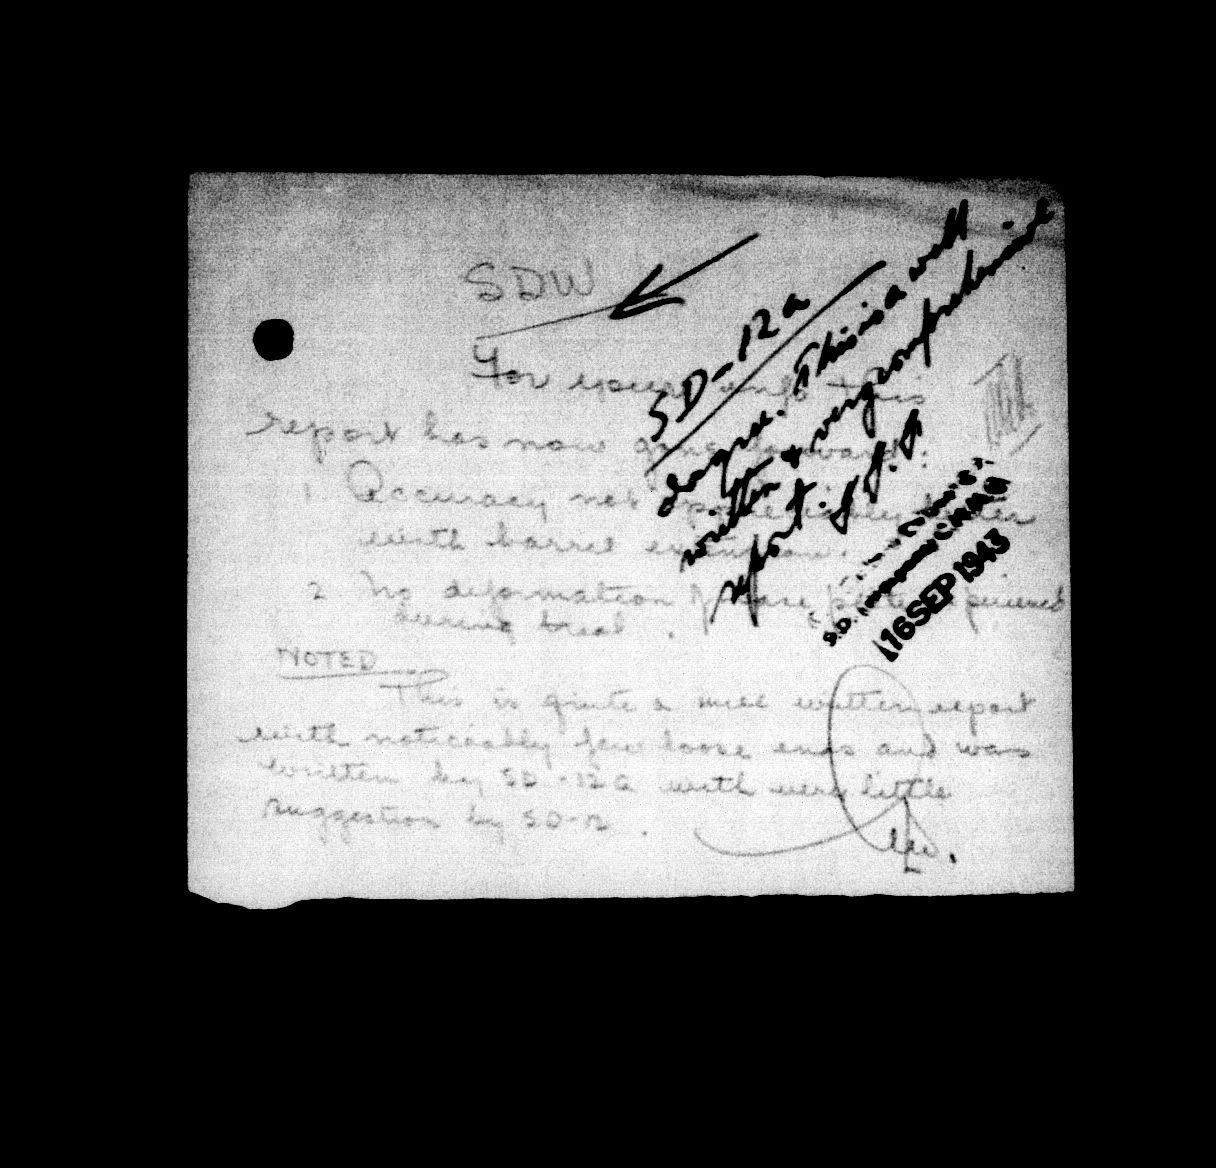 SDW
For your info this
report has now gone forward:
1. Accuracy not appreciably better
with barrel extension.
2 No deformation of base plate experienced
during trial.
NOTED
This is quite a well written report
with noticeably few loose ends and was
written by SD-12a with very little
suggestion by SD-12.
SD-12a
I agree. This is a well
written & very comprehensive
report. J.J.A
S.D.
16 SEP 1943